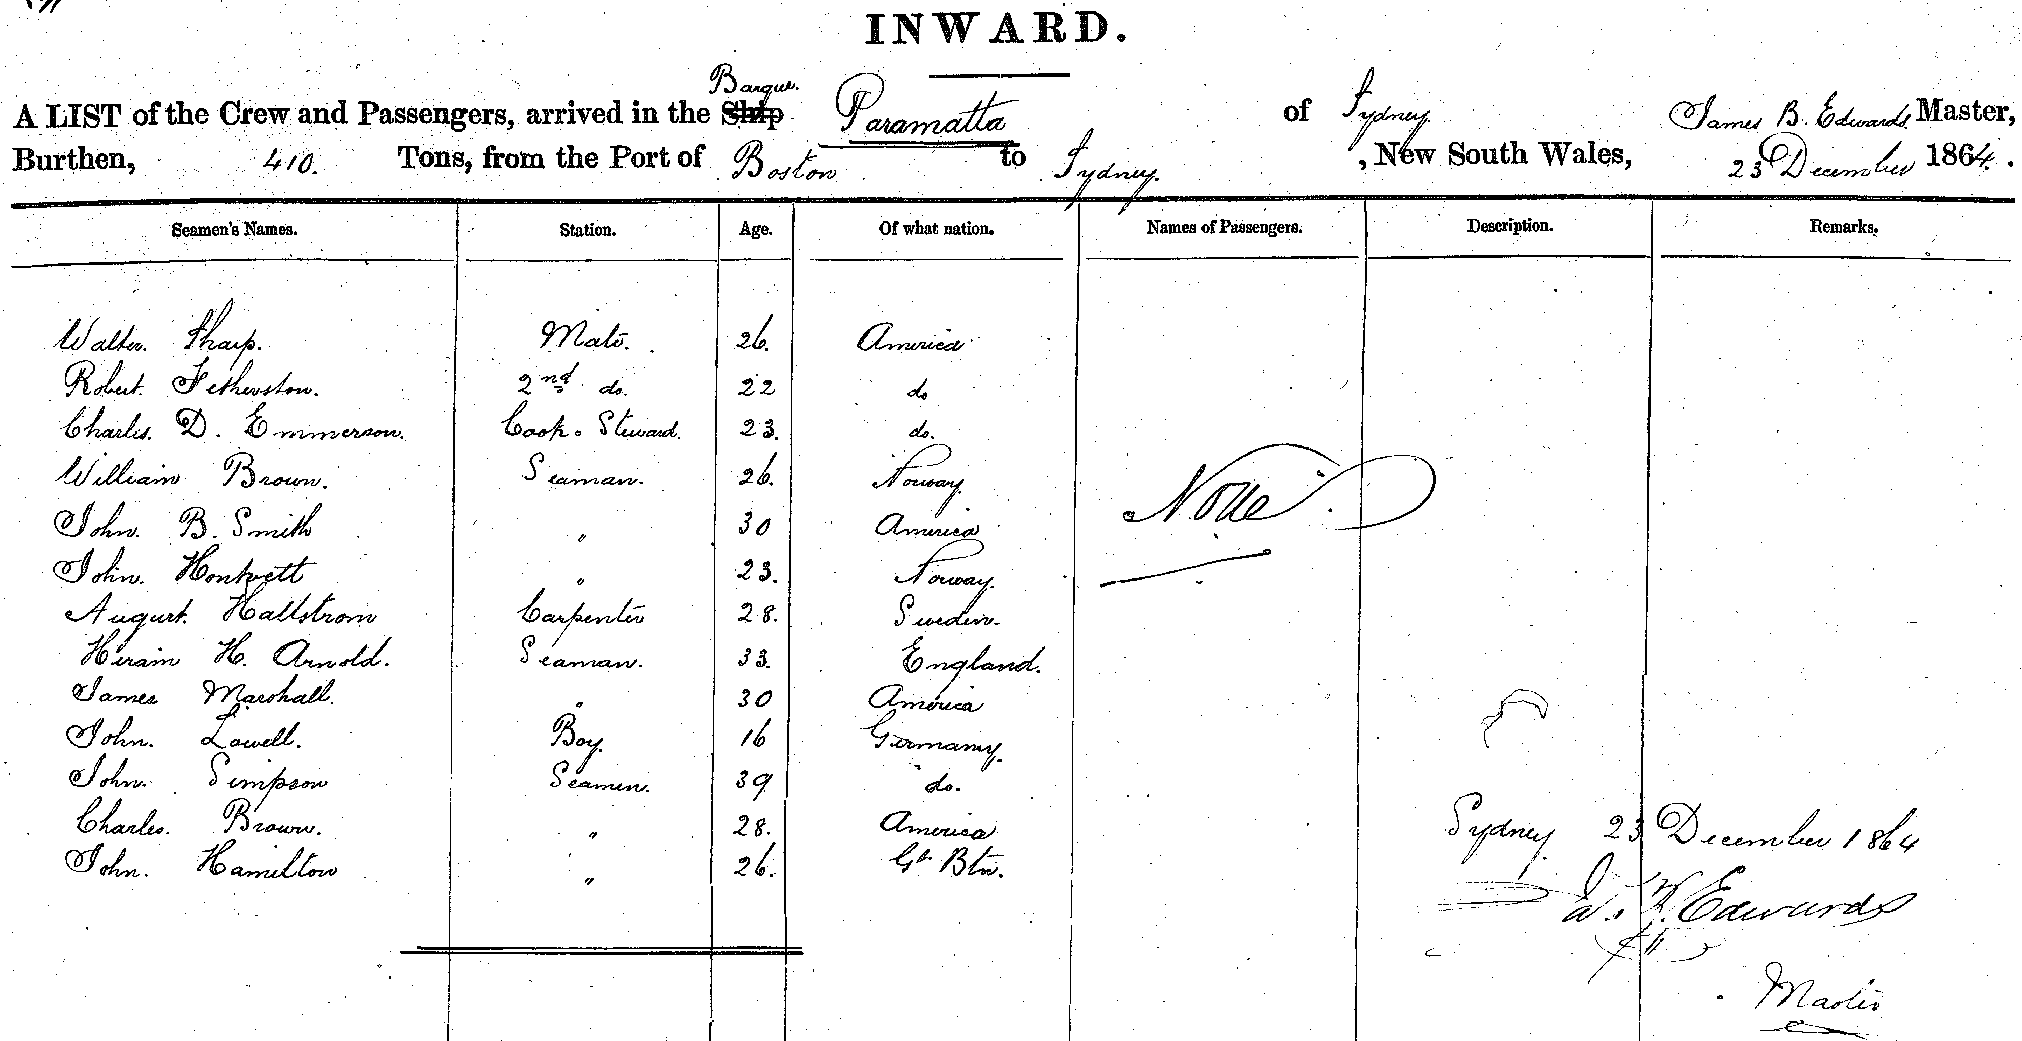 INWARD.
Barque.
A LIST of the Crew and Passengers, arrived in the Ship Paramatta of Sydney James B. Edwards Master,
Burthen, 410. Tons, from the Port of Boston to Sydney. , New South Wales, 23 December 1864.
Seamen's Names. Station. Age. Of what nation. Names of Passengers. Description. Remarks.
Walter. Sharp. Mate. 26. America
Robert. Fetherston. 22 do
2nd do.
Charles. D. Emmerson. Cook. Steward. 23. do.
William Brown. Seaman. 26. Norway.
None.
John. B. Smith " 30 America
John. Hontvett " 23. Norway.
August. Hallstrom Carpenter 28. Sweden.
Hiram H. Arnold. Seaman. 33. England.
James Marshall. " 30 America
John. Lowell. Boy. 16 Germany.
John. Simpson Seamen. 39 do.
Charles. Brown. " 28. America
John. Hamilton " 26. Gt Btn.
Sydney 23 December 1864
Edwards
Master